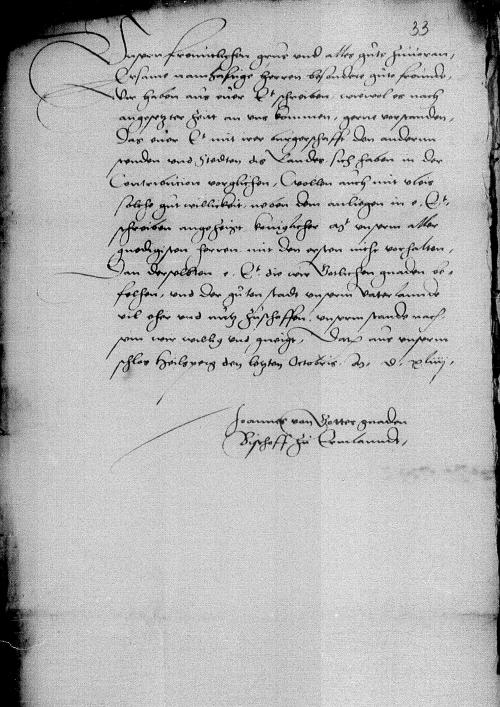 33
Unsern freuntlichen grus und alles guts zuuoran,
Ersame namhafftige herren besondere gute freunde,
Wir haben aus euer E.t schreiben, wiewol es nach
angesetzter zeitt an uns kommen, gerne vorstanden,
Das euer E.t mit irer burgerschafft den anderen
stenden und Stedten des Landes sich haben in der
Contribution vorglichen, Wollen auch mit vleis
solche gutwillickeit, neben dem anliegen in e. E.t
schreiben angezeigt koniglicher M.t unserm aller
gnedigsten herren mit den ersten nicht vorhalten,
Dan derselbten e. E.t die wir Gotlichen gnaden be-
felhen, und der guten stadt unserm vaterlannde
vil eher und nutz zuschaffen, unserm stande nach
sein wir willig und geneigt, Datum aus unserm
schlos Heilsperg den letzten Octobris. M. D. xliiij.
Joannes von Gottes gnaden
Bischoff zu Ermlanndt,